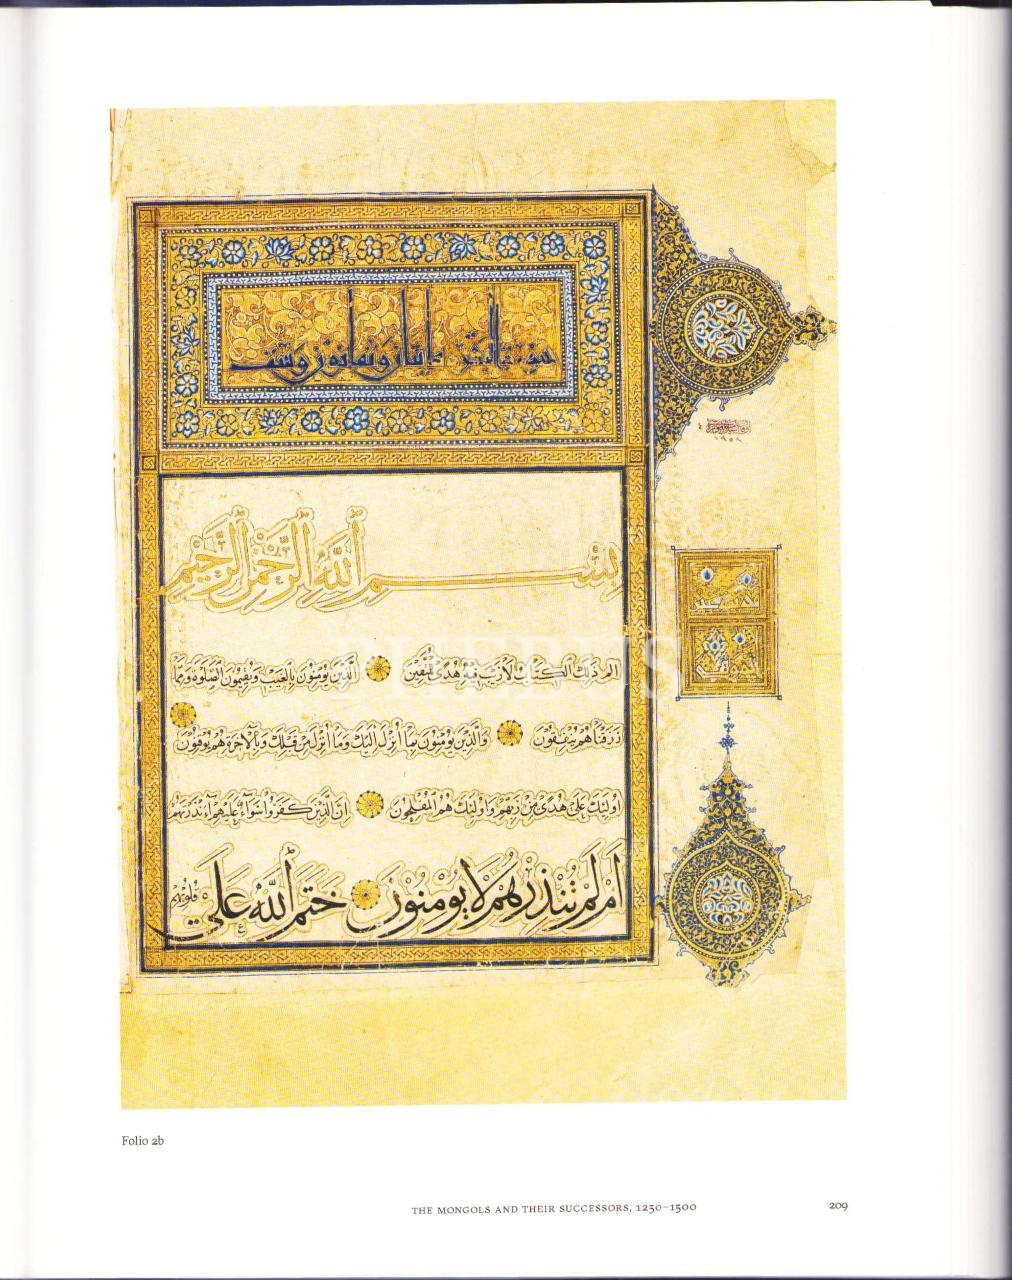 سورة البقرة مايتان وثمانون وست
بسم الله الرحمن الرحيم
الم ذلك الكتاب لا ريب فيه هدى للمتقين الذين يومنون بالغيب ويقيمون الصلوة ومما
رزقناهم ينفقون والذين يومنون بما أنزل اليك وما أنزل من قبلك وبالاخرة هم يوقنون
اولئك على هدى من ربهم واولئك هم المفلحون ان الذين كفروا سواء عليهم ءانذرتهم
ام لم تنذرهم لا يومنون ختم الله على قلوبهم
PHEBUS
Folio 2b
THE MONGOLS AND THEIR SUCCESSORS, 1250–1500
209